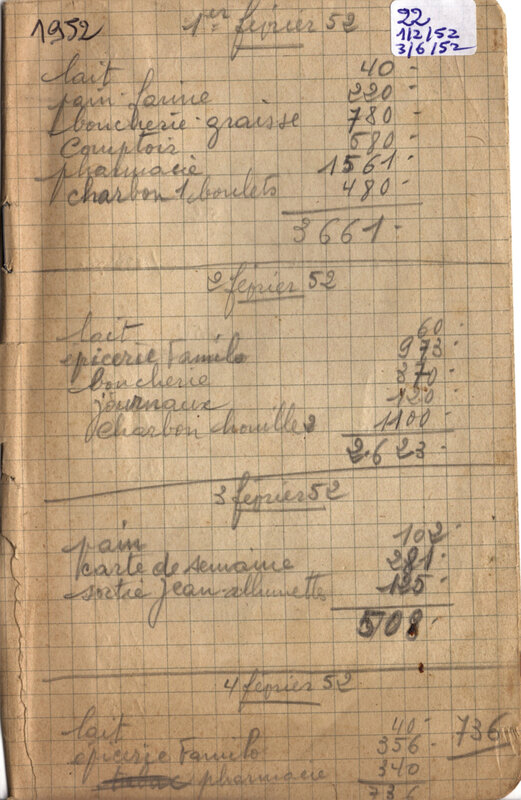 1952
1er février 52
22
1/2/52
3/6/52
lait 40 -
pain farine 220 -
boucherie graisse 780 -
comptoir 580 -
pharmacie 1561 -
charbon 1 boulets 480 -
3661 -
2 février 52
lait 60 -
epicerie Familo 973 -
boucherie 370 -
journaux 120 -
charbon houille 1100 -
2.623 -
3 février 52
pain 102 -
carte de semaine 281 -
sortie jean allumettes 125 -
508 -
4 février 52
lait 40 -
epicerie Familo 356 - 736
tabac pharmacie 340 -
736